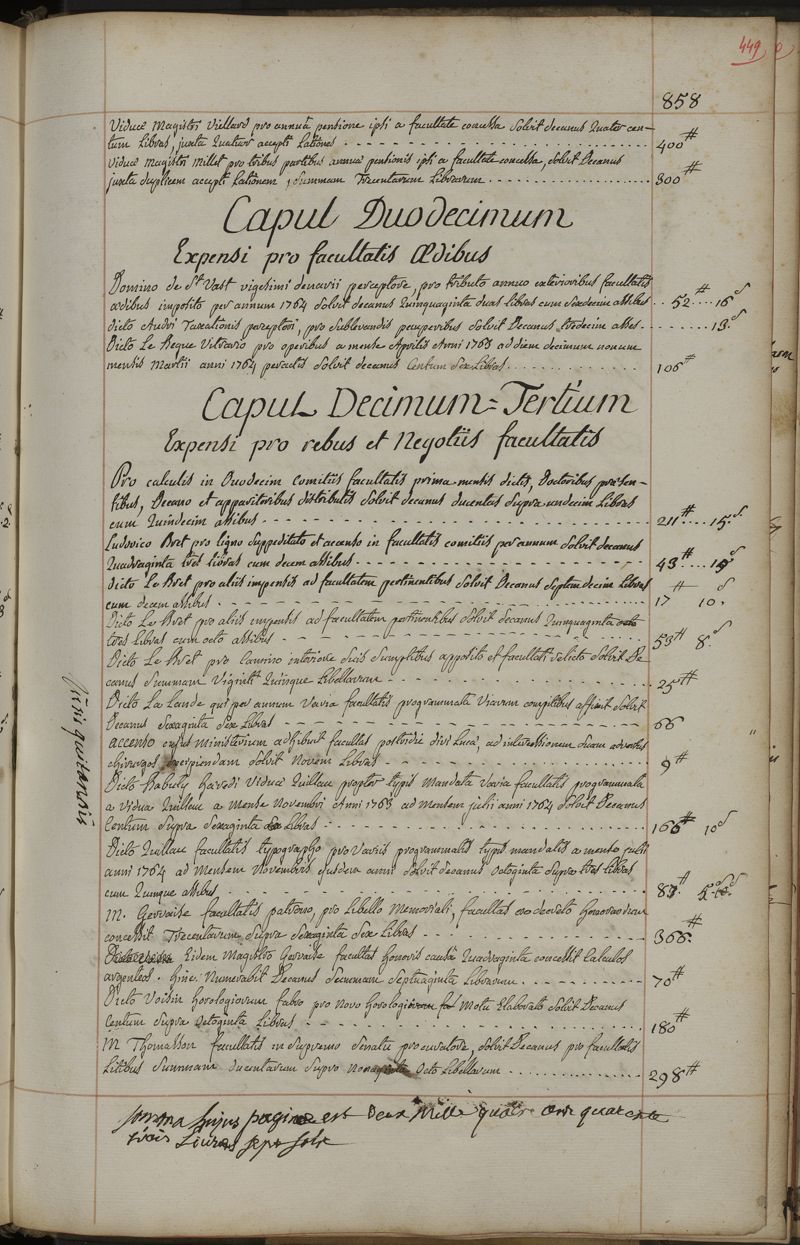 449
858
Viduæ Magistri Viellard pro annuâ pensione ipsi a facultate concessa Solvit decanus Quater cen-
tum Libras, juxta Quatuor accepti Lationes 400#
Viduæ Magistri Millet pro tribus partibus annuæ pensionis ipsi a facultate concessæ, solvit Decanus
juxta duplicem accepti Lationem, Summam Trecentarum Librarum 300#
Caput Duodecimum
Expensi pro facultatis Ædibus
Domino de St Vast vigesimi denarii perceptore, pro tributo annuo exterioribus facultatis
ædibus imposito per annum 1764 Solvit decanus Quinquaginta duas Libras cum Sexdecim assibus 52# 16s
dicto Taxationis perceptori, pro Sublevandis pauperibus Solvit Decanus tredecim asses 13s
Dicto Le Begue Vitrario pro operibus a mense Aprilis Anni 1763 ad diem decimum nonum
mensis Martii anni 1764 peractis Solvit decanus Centum Sex Libras 106#
Caput Decimum-Tertium
Expensi pro rebus et Negotiis facultatis
Pro calculis in Duodecim Comitiis facultatis prima-mensis dictis, Doctoribus præsen-
tibus, Decano et apparitoribus distributis Solvit decanus ducentas Supra undecim Libras
cum Quindecim assibus 211# 15s
Ludovico Bret pro ligno Suppeditato et accenso in facultatis comitiis per annum Solvit decanus
Quadraginta tres libras cum decem assibus 43#
Dicto Le Bret pro aliis impensis ad facultatem pertinentibus Solvit Decanus Septem decim Libras
cum decem assibus 17# 10s
Dicto Le Bret pro aliis impensis ad facultatem pertinentibus Solvit decanus Quinquaginta
tres Libras cum octo assibus 53# 8s
Dicto Le Bret pro Camino interiore Suis Sumptibus apposito et facultati relicto Solvit De-
canus Summam Viginti Quinque Libellarum 25#
Dicto La Lande qui per annum Varia facultatis programmata Viarum compitibus affixit Solvit
Decanus Sexaginta Sex Libras 66
accenso cujus ministerium adhibuit facultas postridie divi Lucæ, ad intercessionem suam adversus
chirurgos excipiendam Solvit Novem Libras 9#
Dicto Babuty hæredi Viduæ Quillau propter typis Mandata Varia facultatis programmata
a Vidua Quillau a Mense Novembri Anni 1763 ad Mensem julii anni 1764 Solvit Decanus
Centum Supra Sexaginta Sex Libras 166# 10s
Dicto Quillau facultatis typographo pro Variis programmatis typis mandatis a mense julii
anni 1764 ad Mensem Novembris ejusdem anni Solvit decanus Octoginta Supra tres Libras
cum Quinque assibus 83# 5s
M. Gervaise facultatis patrono, pro Libello Memoriali, facultas ex decreto Honorarium
concessit Trecentarum Supra Sexaginta Sex Libras 366#
Eidem Magistro Gervaise facultas Honoris causâ Quadraginta concessit Calculos
argenteos. hinc Numerabit Decanus Summam Septuaginta Librarum 70#
Dicto Voisin Horologiorum fabro pro Novo Horologiorum Motu Elaborato Solvit Decanus
Centum Supra Octoginta Libras 180#
M Thomasson facultatis in Supremo Senatu procuratore, Solvit Decanus pro facultatis
Litibus Summam ducentarum Supra Nonaginta Octo Libellarum 298#
Somma hujus paginæ est Deux Mille quatre cent quarente
trois Livres sept sols